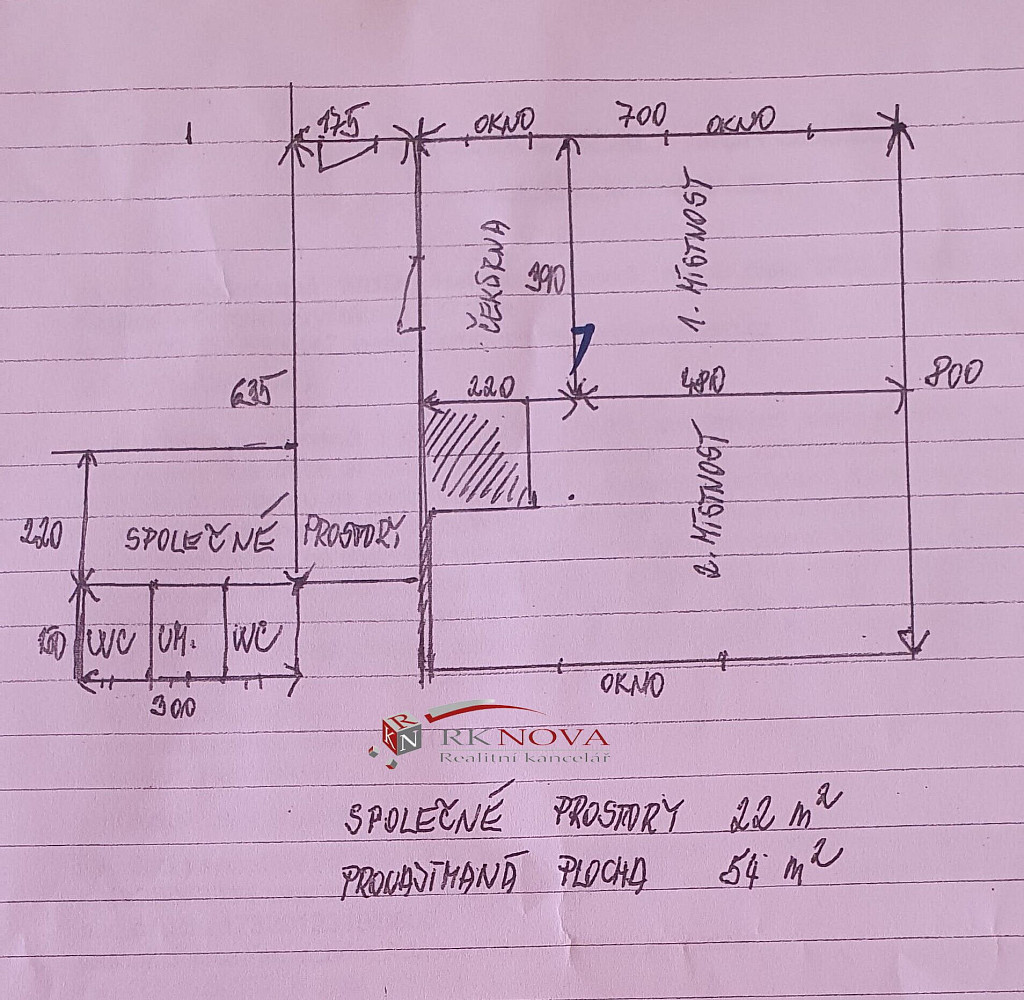 175
OKNO
700
OKNO
ČEKÁRNA
390
1. MÍSTNOST
635
220
480
800
2. MÍSTNOST
220
SPOLEČNÉ PROSTORY
150
WC
UM.
WC
300
OKNO
R
K
N
RK NOVA
Realitní kancelář
SPOLEČNÉ PROSTORY 22 m²
PRONAJÍMANÁ PLOCHA 54 m²